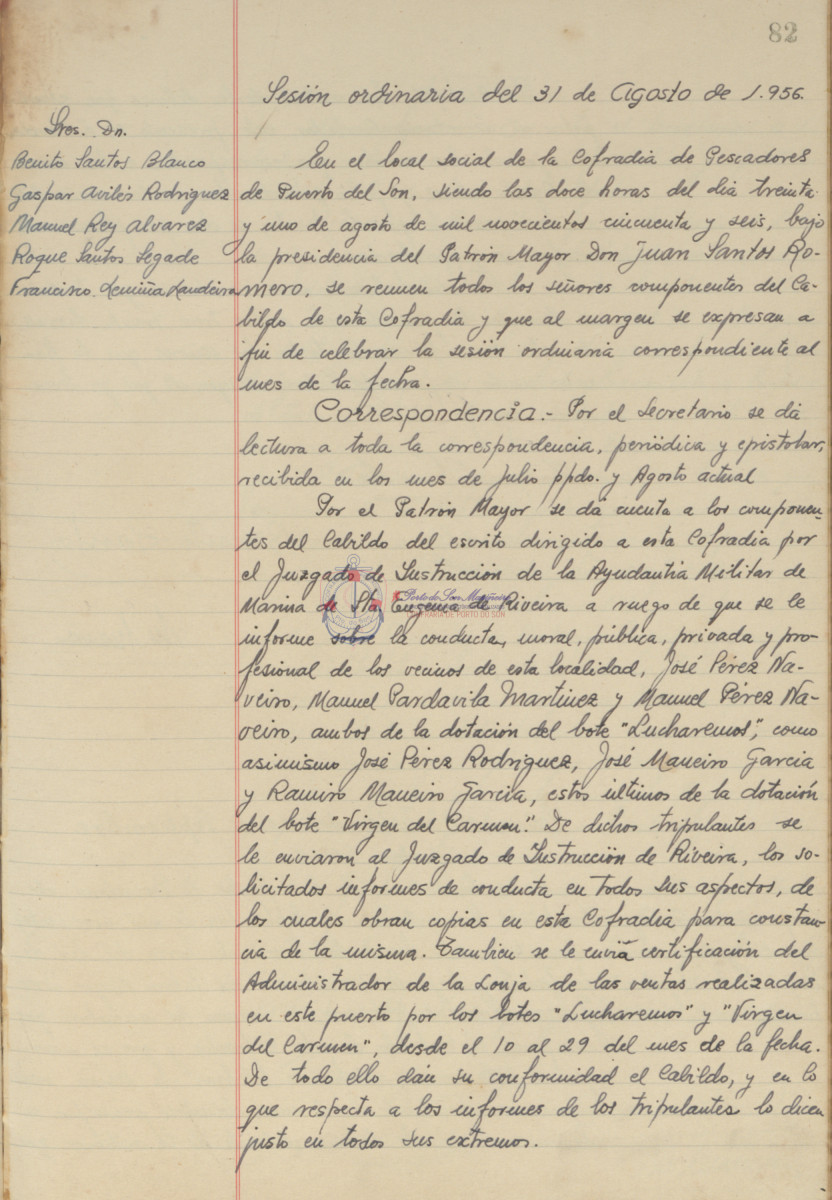 82
Sesión ordinaria del 31 de Agosto de 1.956.
Sres. Dn.
Benito Santos Blanco
Gaspar Avilés Rodriguez
Manuel Rey Alvarez
Roque Santos Segade
Francisco Lemiña Landeira
En el local social de la Cofradia de Pescadores
de Puerto del Son, siendo las doce horas del dia treinta
y uno de agosto de mil novecientos cincuenta y seis, bajo
la presidencia del Patrón Mayor Don Juan Santos Ro-
mero, se reunen todos los señores componentes del Ca-
bildo de esta Cofradia y que al margen se expresan a
fin de celebrar la sesión ordinaria correspondiente al
mes de la fecha.
Correspondencia.- Por el Secretario se dá
lectura a toda la correspondencia, periódica y epistolar,
recibida en los mes de Julio ppdo. y Agosto actual
Por el Patrón Mayor se dá cuenta a los componen-
tes del Cabildo del escrito dirigido a esta Cofradia por
el Juzgado de Instrucción de la Ayudantia Militar de
Marina de Sta. Eugenia de Riveira a ruego de que se le
informe sobre la conducta, moral, pública, privada y pro-
fesional de los vecinos de esta localidad, José Pérez Na-
veiro, Manuel Pardavila Martinez y Manuel Pérez Na-
veiro, ambos de la dotación del bote "Lucharemos", como
asimismo José Pérez Rodriguez, José Maneiro Garcia
y Ramiro Maneiro Garcia, estos últimos de la dotación
del bote "Virgen del Carmen". De dichos tripulantes se
le enviaron al Juzgado de Instrucción de Riveira, los so-
licitados informes de conducta en todos sus aspectos, de
los cuales obran copias en esta Cofradia para constan-
cia de la misma. Tambien se le enviá certificación del
Administrador de la Lonja de las ventas realizadas
en este puerto por los botes "Lucharemos" y "Virgen
del Carmen", desde el 10 al 29 del mes de la fecha.
De todo ello dán su conformidad el Cabildo, y en lo
que respecta a los informes de los tripulantes lo dicen
justo en todos sus extremos.